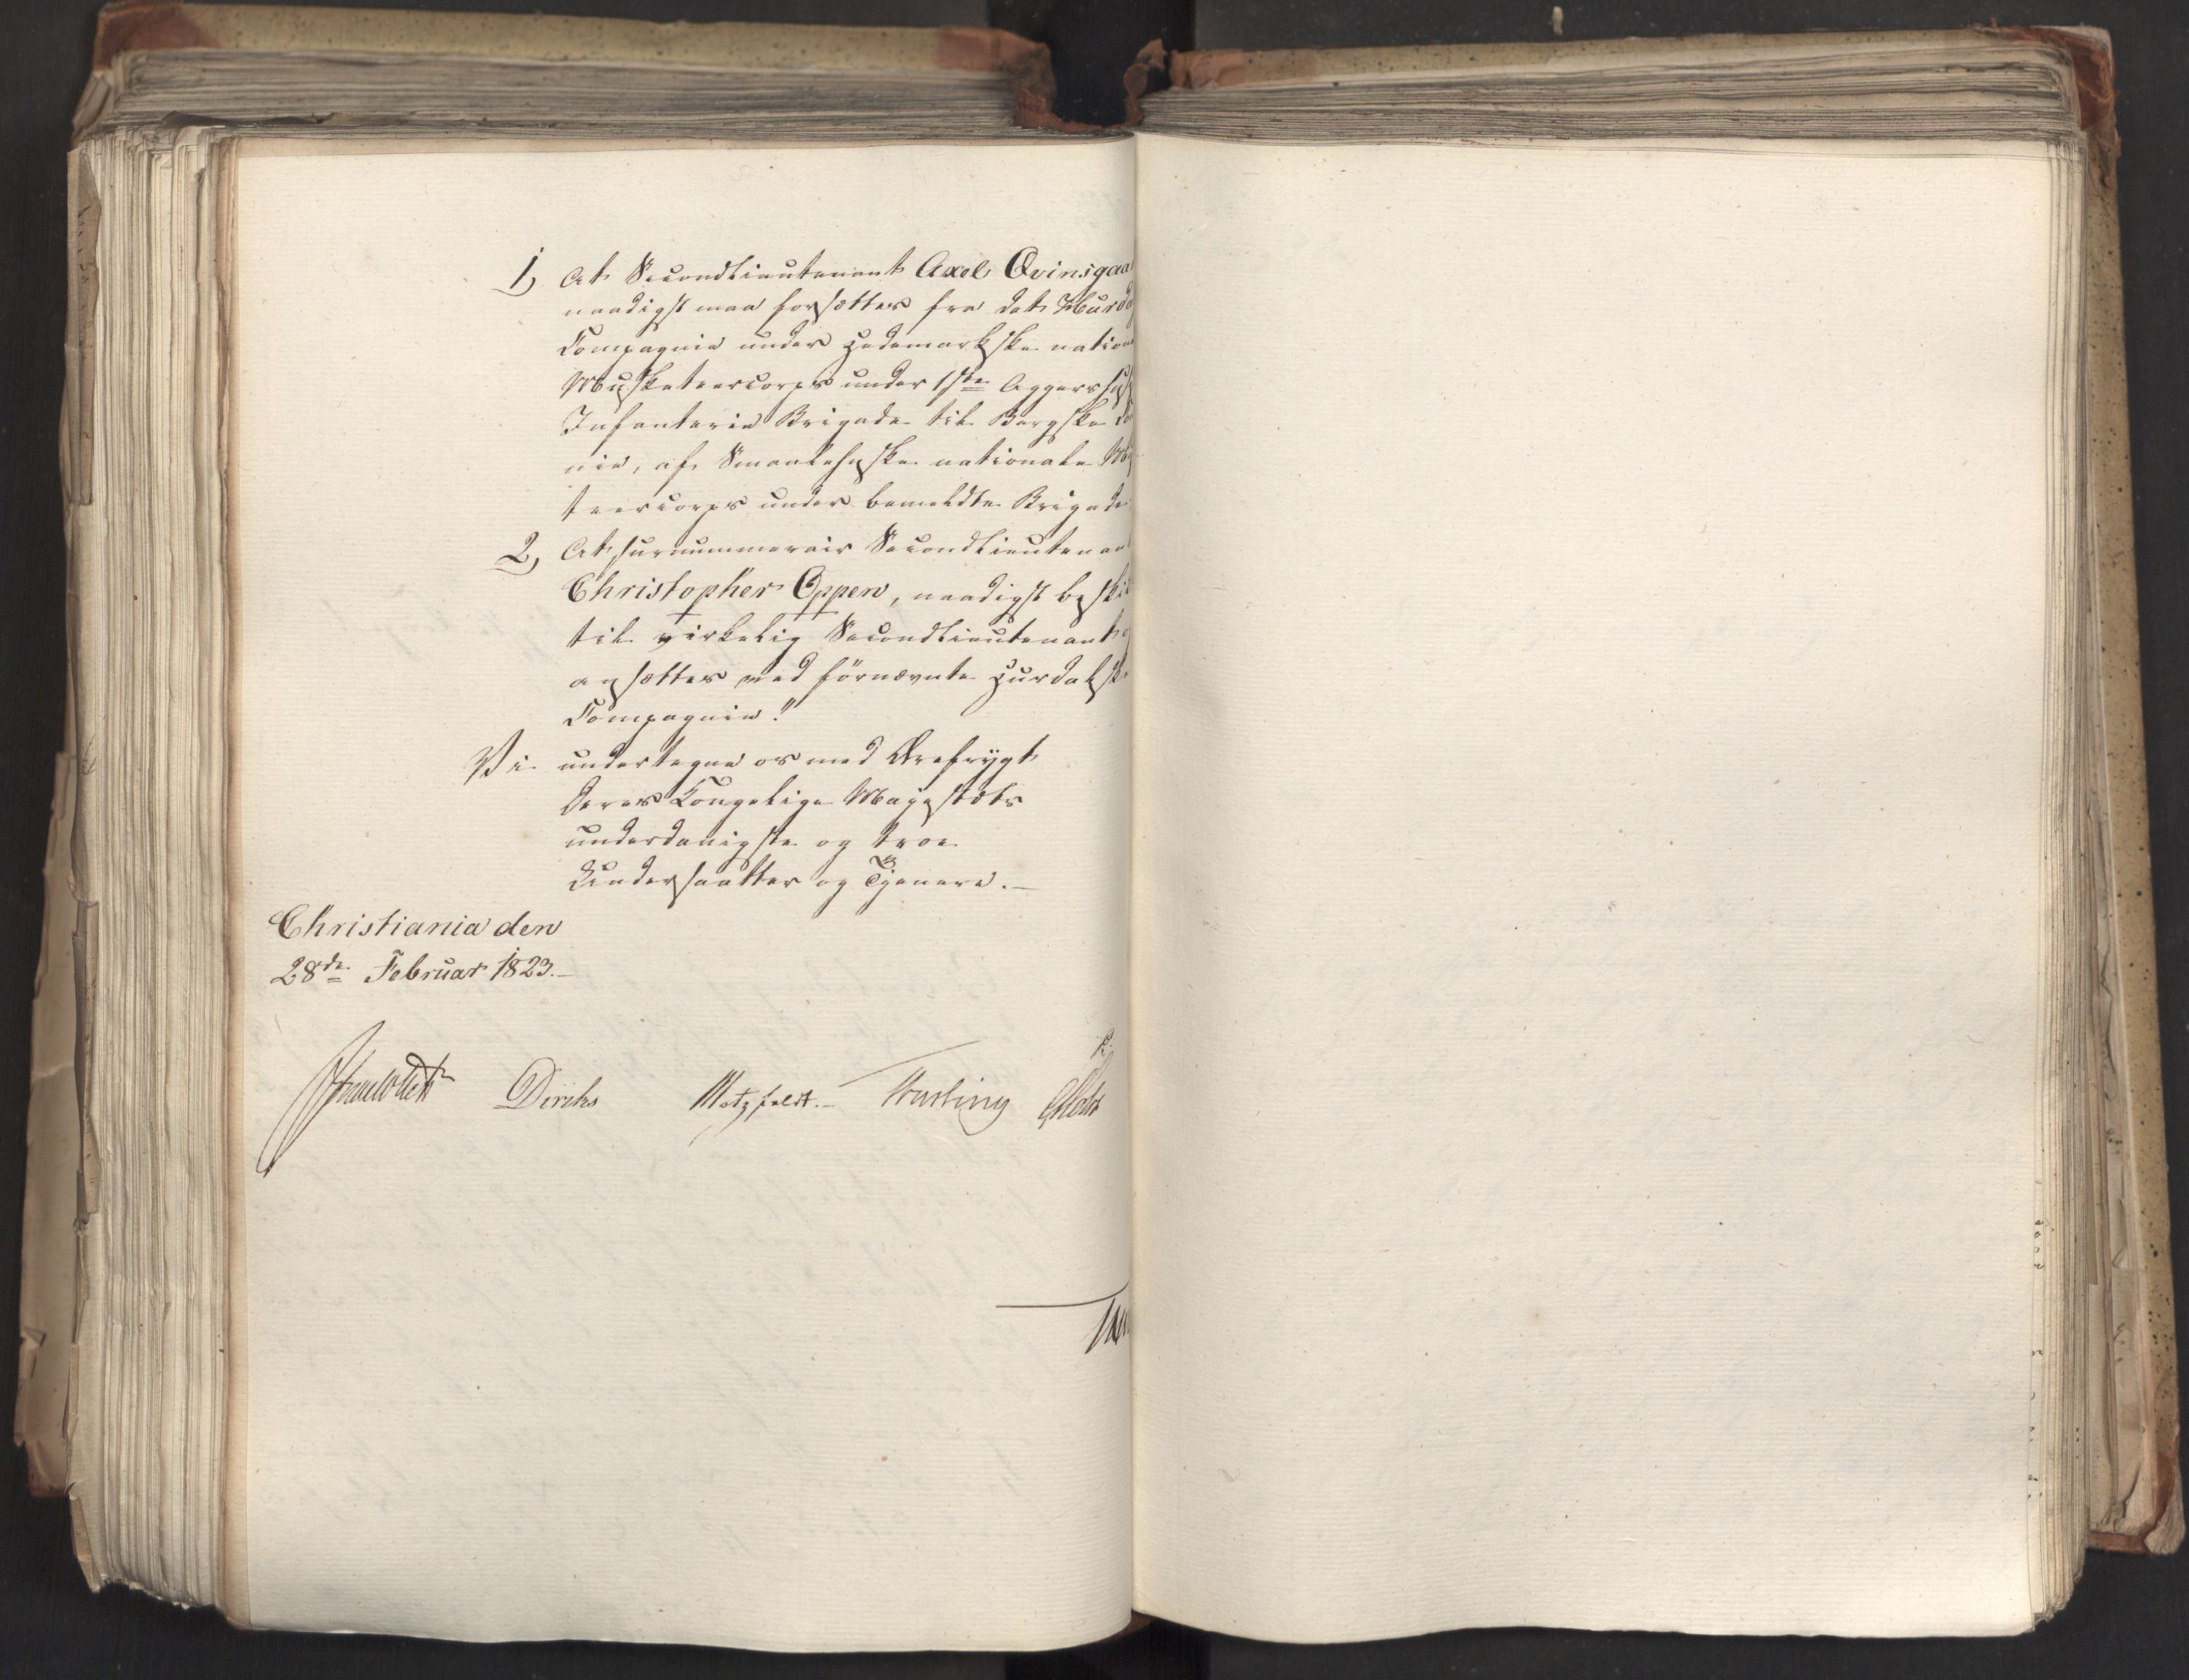 1, At Secondlieutenant Axel Qvinsgaa
naadigst maa forsættes fra det Hurda
Compagnie under Hedemarkske nation
Musketeercorps under 1ste Aggershus
Infanterie Brigade til Bergske Co
nie, af Smaalehnske nationale Mu
teercorps under bemeldte Brigade
2, At surnummerair Secondlieutenan
Christopher Oppen, naadigst beski
til virkelig Secondlieutenant o
ansættes ved förnævnte Hurdalske
Compagnie."
Vi undertegne os med Ærefrygt
Deres Kongelige Majestæts
underdanigste og troe
Undersaatter og Tjenere. —
Christiania den
28de Februar 1823. —
Diriks Motzfeldt. — Krebs